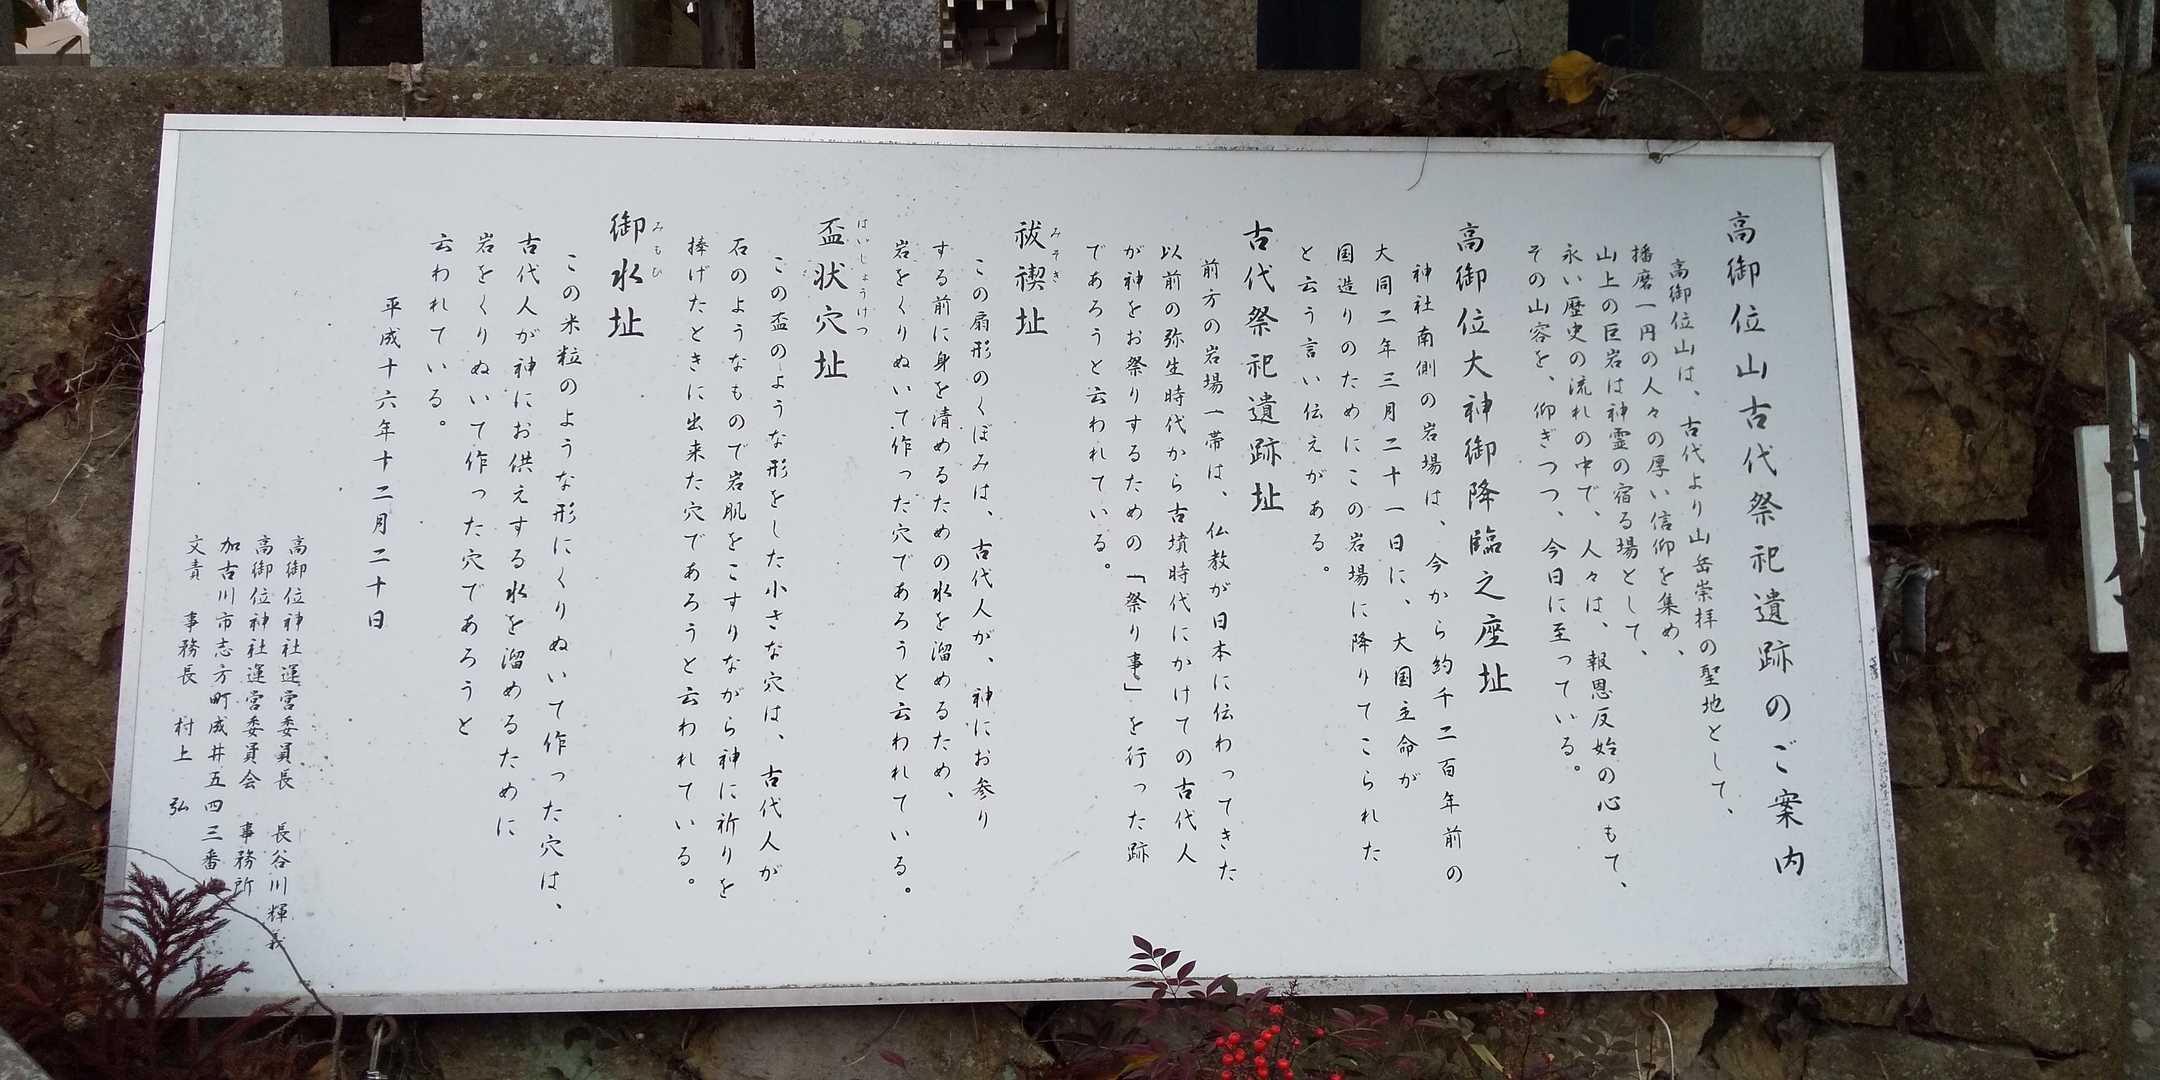 高御位山古代祭祀遺跡のご案内
高御位山は、古代より山岳崇拝の聖地として、
播磨一円の人々の厚い信仰を集め、
山上の巨岩は神霊の宿る場として、
永い歴史の流れの中で、人々は、報恩反始の心もて、
その山容を、仰ぎつつ、今日に至っている。
高御位大神御降臨之座址
神社南側の岩場は、今から約千二百年前の
大同二年三月二十一日に、大国主命が
国造りのためにこの岩場に降りてこられた
と云う言い伝えがある。
古代祭祀遺跡址
前方の岩場一帯は、仏教が日本に伝わってきた
以前の弥生時代から古墳時代にかけての古代人
が神をお祭りするための「祭り事」を行った跡
であろうと云われている。
みそぎ
祓禊址
この扇形のくぼみは、古代人が、神にお参り
する前に身を清めるための水を溜めるため、
岩をくりぬいて作った穴であろうと云われている。
はいじょうけつ
盃状穴址
この盃のような形をした小さな穴は、古代人が
石のようなもので岩肌をこすりながら神に祈りを
捧げたときに出来た穴であろうと云われている。
みもひ
御水址
この米粒のような形にくりぬいて作った穴は、
古代人が神にお供えする水を溜めるために
岩をくりぬいて作った穴であろうと
云われている。
平成十六年十二月二十日
高御位神社運営委員長 長谷川輝義
高御位神社運営委員会 事務所
加古川市志方町成井五四三番
文責 事務長 村上 弘